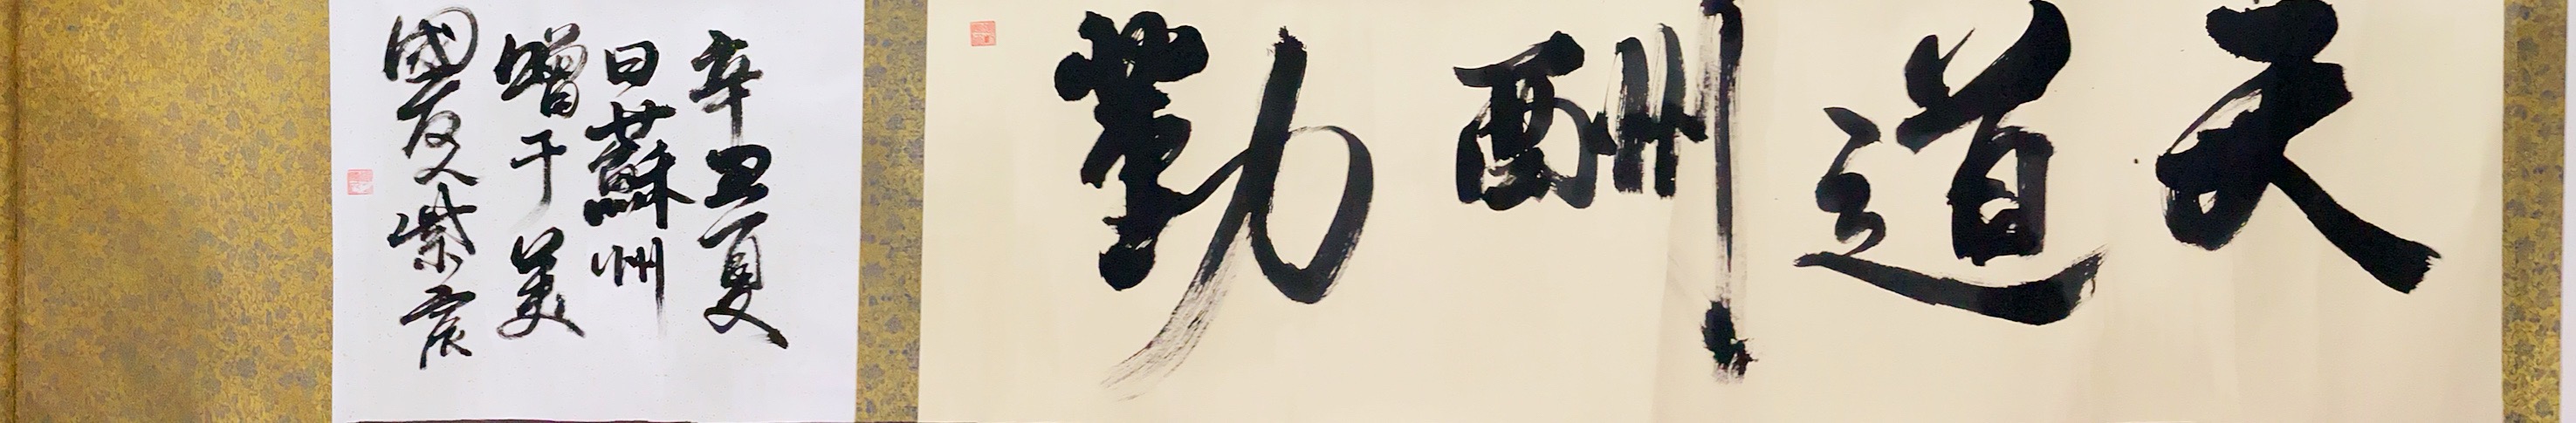 天道酬勤
辛丑夏
日蘇州
贈于美
國友人紫宸